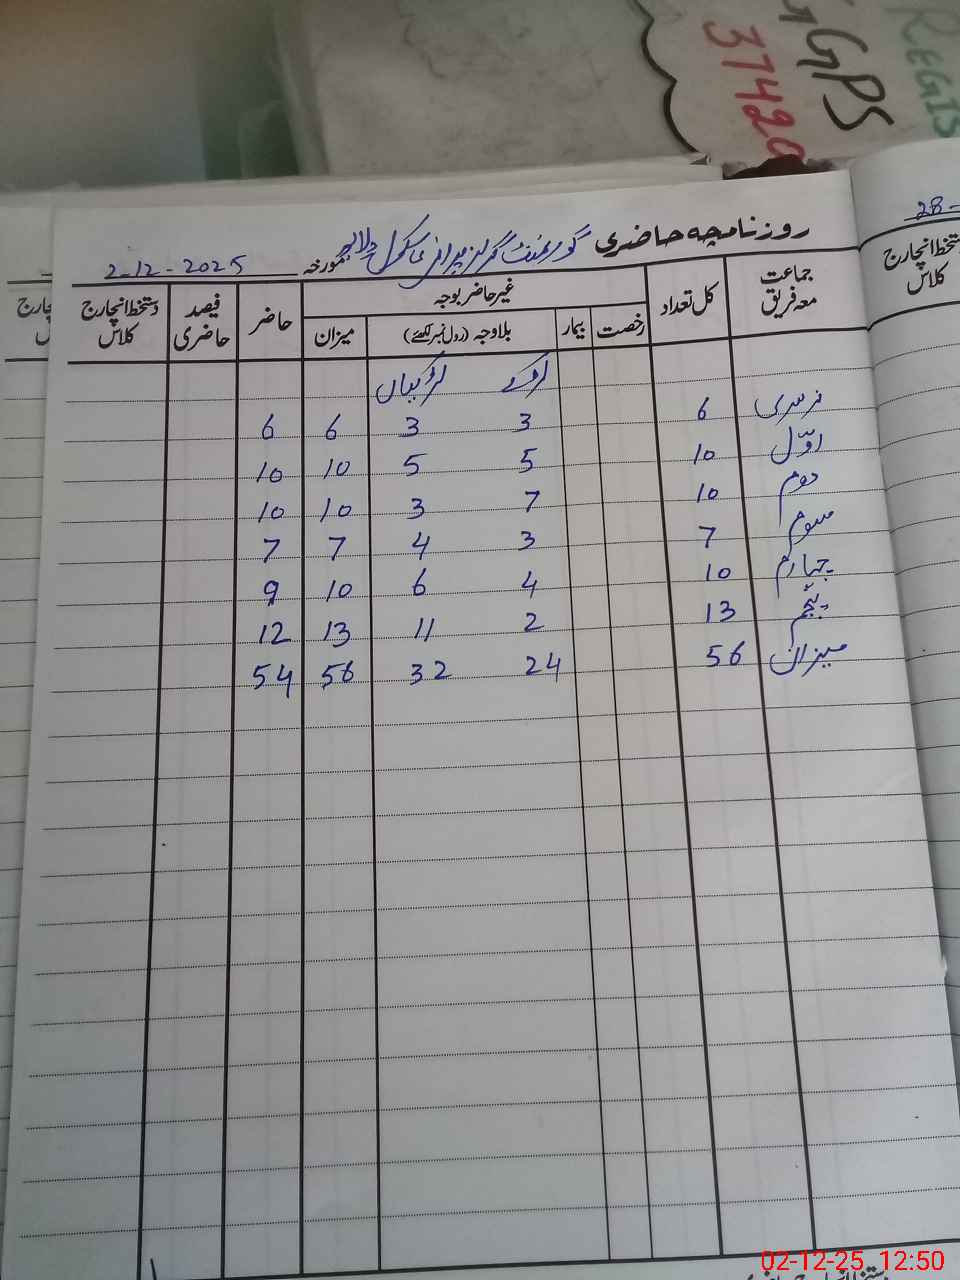 REGIS
GGPS
37420
روزنامچہ حاضری گورنمنٹ گرلز پرائمری سکول
مورخہ 2-12-2025
28-
جماعت معہ فریق کل تعداد غیر حاضر بوجہ حاضر فیصد حاضری دستخط انچارج کلاس
رخصت بیمار بلاوجہ (رول نمبر لکھئے) میزان
لڑکے لڑکیاں
نرسری 6 3 3 6 6
اوّل 10 5 5 10 10
دوم 10 7 3 10 10
سوم 7 3 4 7 7
چہارم 10 4 6 10 9
پنجم 13 2 11 13 12
میزان 56 24 32 56 54
دستخط انچارج
کلاس
02-12-25 12:50